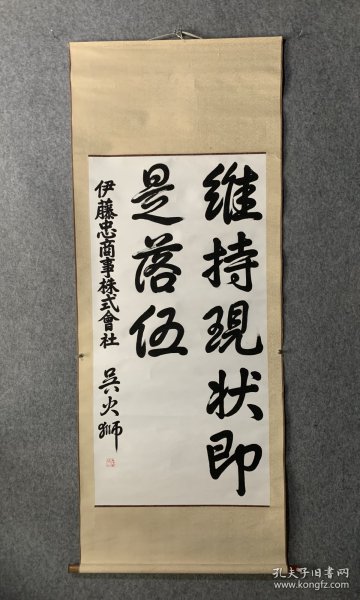 維持現状即
是落伍
伊藤忠商事株式會社 吳火獅
孔夫子旧书网
www.kongfz.com